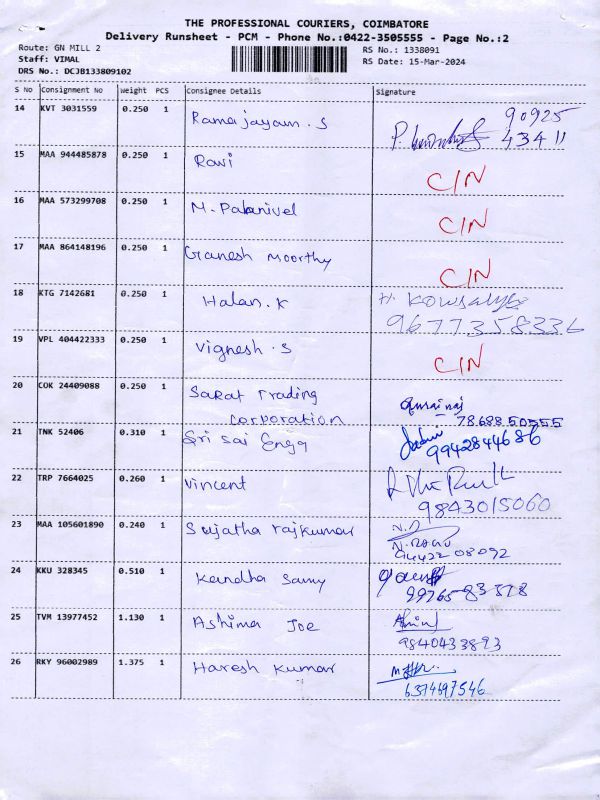 THE PROFESSIONAL COURIERS, COIMBATORE
Delivery Runsheet - PCM - Phone No.:0422-3505555 - Page No.:2
Route: GN MILL 2
Staff: VIMAL
DRS No.: DCJB133809102
RS No.: 1338091
RS Date: 15-Mar-2024
S No Consignment No Weight PCS Consignee Details Signature
14 KVT 3031559 0.250 1 Ramajayam . S 90925 43411
15 MAA 944485878 0.250 1 Ravi C/N
16 MAA 573299708 0.250 1 M. Palanivel C/N
17 MAA 864148196 0.250 1 Ganesh moorthy C/N
18 KTG 7142681 0.250 1 Halan . K H. Kowsalya
9677358336
19 VPL 404422333 0.250 1 Vignesh . S C/N
20 COK 24409088 0.250 1 Sarat Trading
corporation 78688 50555
21 TNK 52406 0.310 1 Sri Sai Engg 9942844686
22 TRP 7664025 0.260 1 Vincent
9843015060
23 MAA 105601890 0.240 1 Sujatha rajkumar N.
94422 08092
24 KKU 328345 0.510 1 Kandha Samy
99765 83578
25 TVM 13977452 1.130 1 Ashima Joe
9840433893
26 RKY 96002989 1.375 1 Haresh Kumar
6374697546